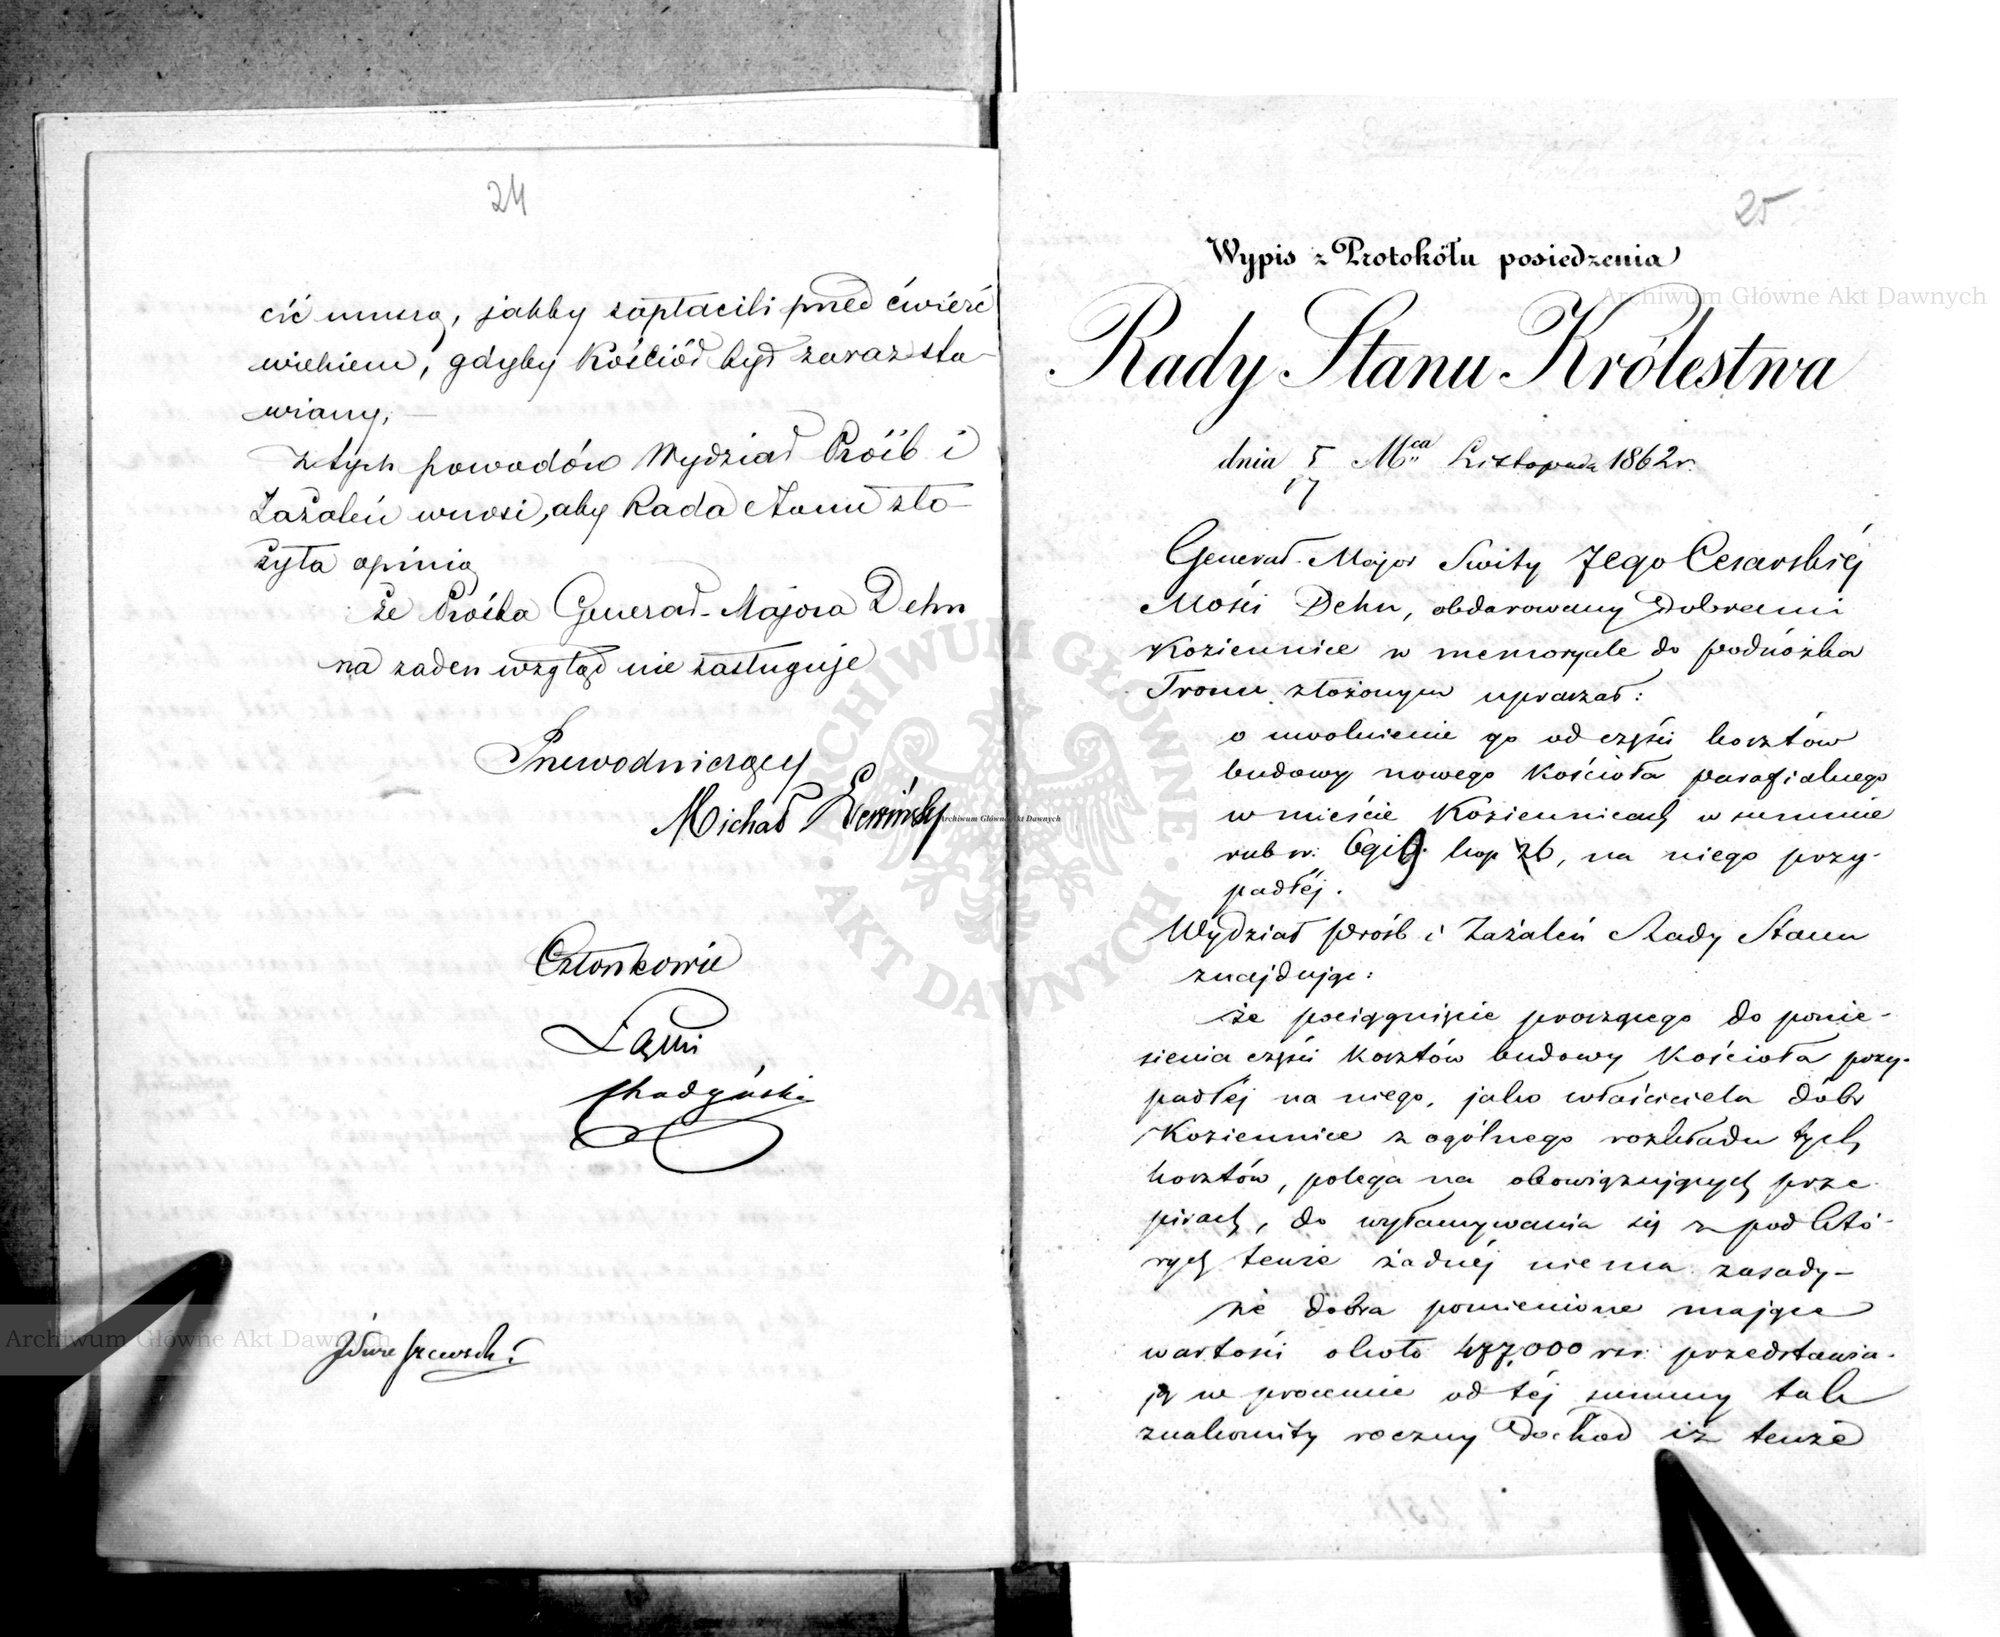 24
cić muszą, jakby zapłacili przed ćwierć
wiekiem, gdyby Kościół był zaraz sta-
wiany,
z tych powodów Wydział Próśb i
Zażaleń wnosi, aby Rada Stanu zło-
żyła opinię
że Prośba Generał-Majora Dehn
na żaden wzgląd nie zasługuje
Przewodniczący
Michał
Członkowie
Łęski
25
Wypis z Protokółu posiedzenia
Rady Stanu Królestwa
dnia 5 Mca Listopada 1862 r.
17
Generał-Major Świty Jego Cesarskiéj
Mości Dehn, obdarowany Dobrami
Kozienice w memoryale do podnóżka
Tronu złożonym upraszał:
o uwolnienie go od części kosztów
budowy nowego Kościoła parafialnego
w mieście Koziennicach w summie
rub sr: kop 26, na niego przy-
padłéj.
Wydział Próśb i Zażaleń Rady Stanu
znajdując:
że pociągnięcie proszącego do ponie-
sienia części kosztów budowy Kościoła przy-
padłéj na niego, jako właściciela dóbr
Koziennice z ogólnego rozkładu tych
kosztów, polega na obowiązujących prze-
pisach, do wyłamywania się z pod któ-
rych tenże żadnéj niema zasady-
że dobra pomienione mające
wartości około 477,000 rsr. przedstawia-
ją w procencie od téj summy tak
znakomity roczny dochód iż tenże
Archiwum Główne Akt Dawnych
Archiwum Główne Akt Dawnych
Archiwum Główne Akt Dawnych
ARCHIWUM GŁÓWNE
AKT DAWNYCH